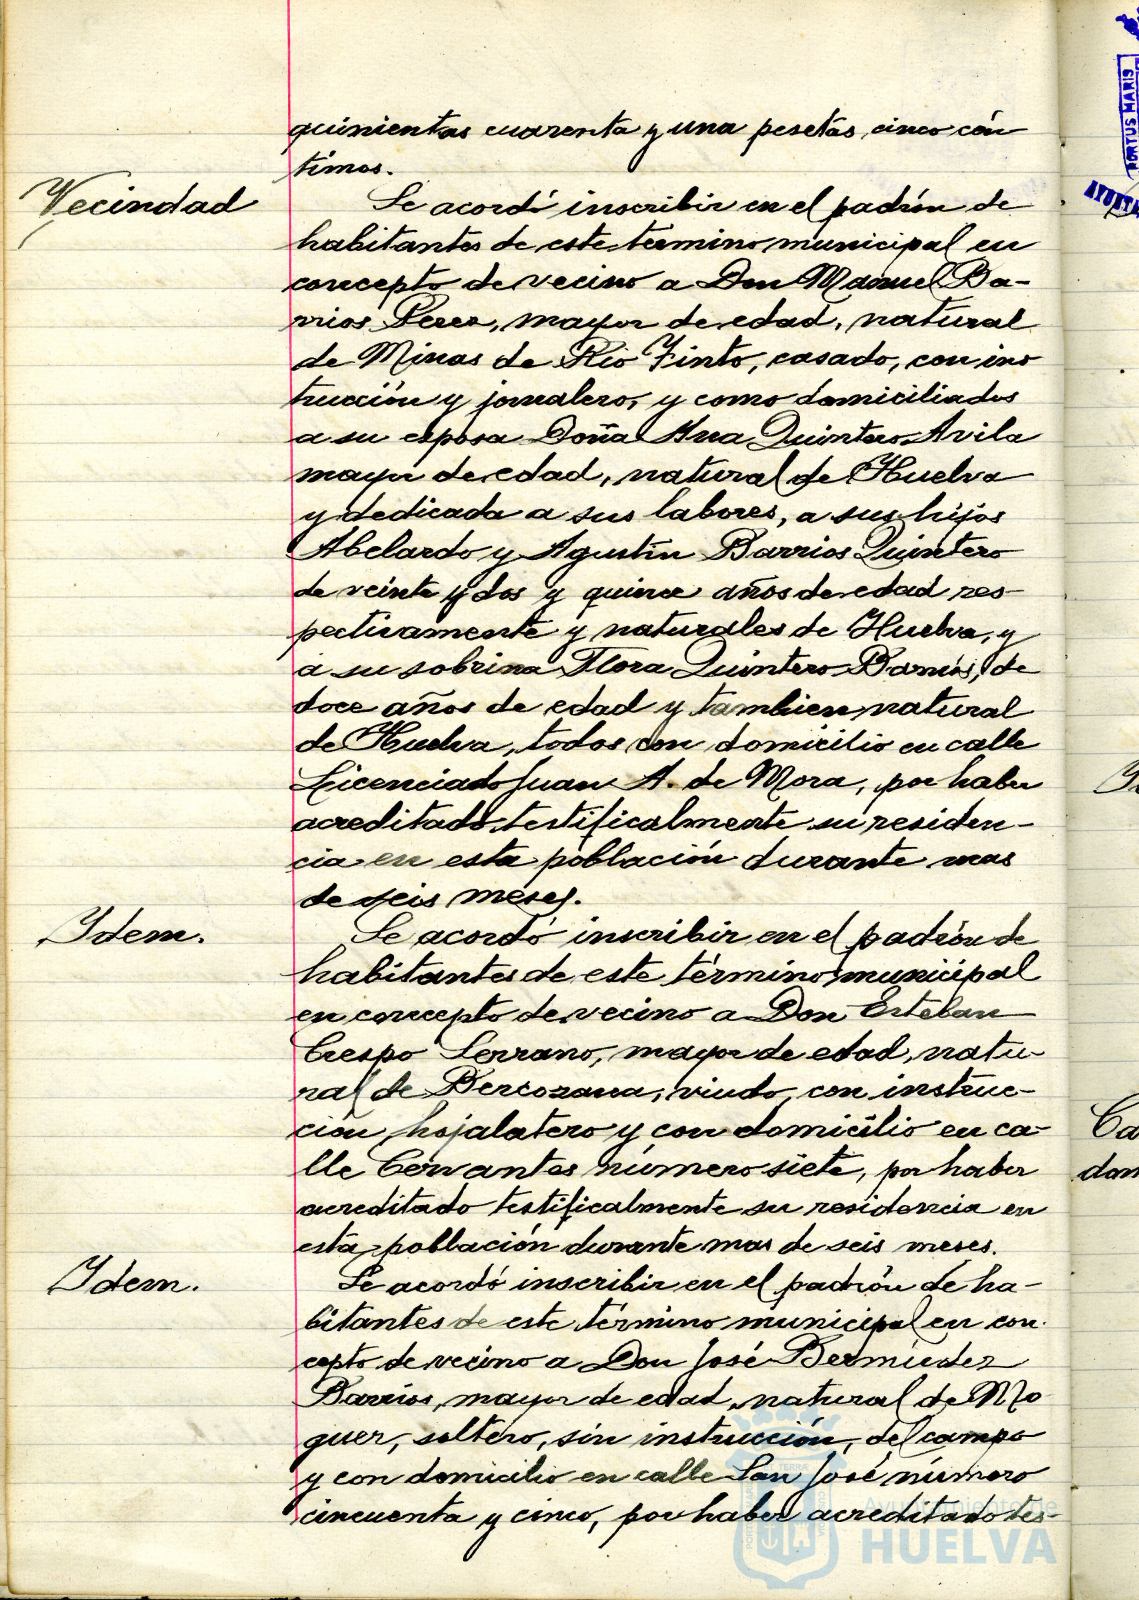 quinientas cuarenta y una pesetas cinco cén
timos.
Vecindad
Se acordó inscribir en el padrón de
habitantes de este término municipal en
concepto de vecino a Don Manuel Ba-
rrios Perez, mayor de edad, natural
de Minas de Rio Tinto, casado, con ins
trucción y jornalero, y como domiciliados
a su esposa Doña Ana Quintero Avila
mayor de edad, natural de Huelva
y dedicada a sus labores, a sus hijos
Abelardo y Agustín Barrios Quintero
de veinte y dos y quince años de edad res-
pectivamente y naturales de Huelva, y
a su sobrina Flora Quintero Barrios, de
doce años de edad y tambien natural
de Huelva, todos con domicilio en calle
Licenciado Juan A. de Mora, por haber
acreditado testificalmente su residen-
cia en esta población durante mas
de seis meses.
Idem.
Se acordó inscribir en el padrón de
habitantes de este término municipal
en concepto de vecino a Don Esteban
Crespo Serrano, mayor de edad, natu-
ral de viudo, con instruc-
ción, hojalatero y con domicilio en ca-
lle Cervantes número siete, por haber
acreditado testificalmente su residencia en
esta población durante mas de seis meses.
Idem.
Se acordó inscribir en el padrón de ha-
bitantes de este término municipal en con-
cepto de vecino a Don José Bermúdez
Barrios, mayor de edad, natural de Mo
guer, soltero, sin instrucción, del campo
y con domicilio en calle San José número
cincuenta y cinco, por haber acreditado tes-
Ayuntamiento de
HUELVA
PORTUS MARIS
Ca
don